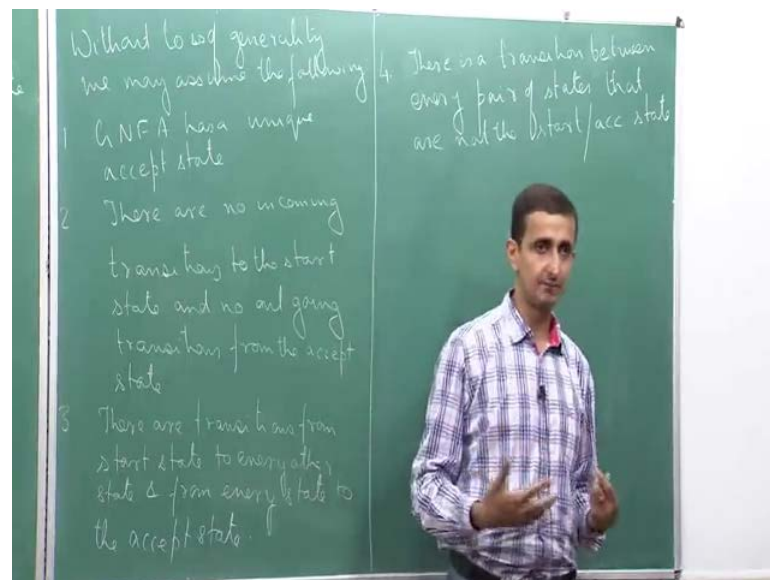 Without loss generality
we may assume the following
1 GNFA has a unique
accept state
2 There are no incoming
transitions to the start
state and no out going
transitions from the accept
state
3 There are transitions from
start state to every other
state & from every state to
the accept state.
4. There is a transition between
every pair of states that
are not the start/acc state